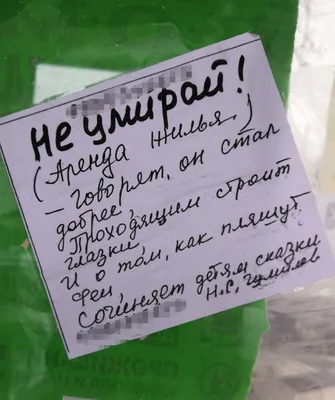 Не умирай!
(Аренда жилья)
– говорят, он стал
добрее,
Проходящим строит
глазки,
И о том, как пляшут
феи,
Сочиняет детям сказки
Н.С. Гумилев